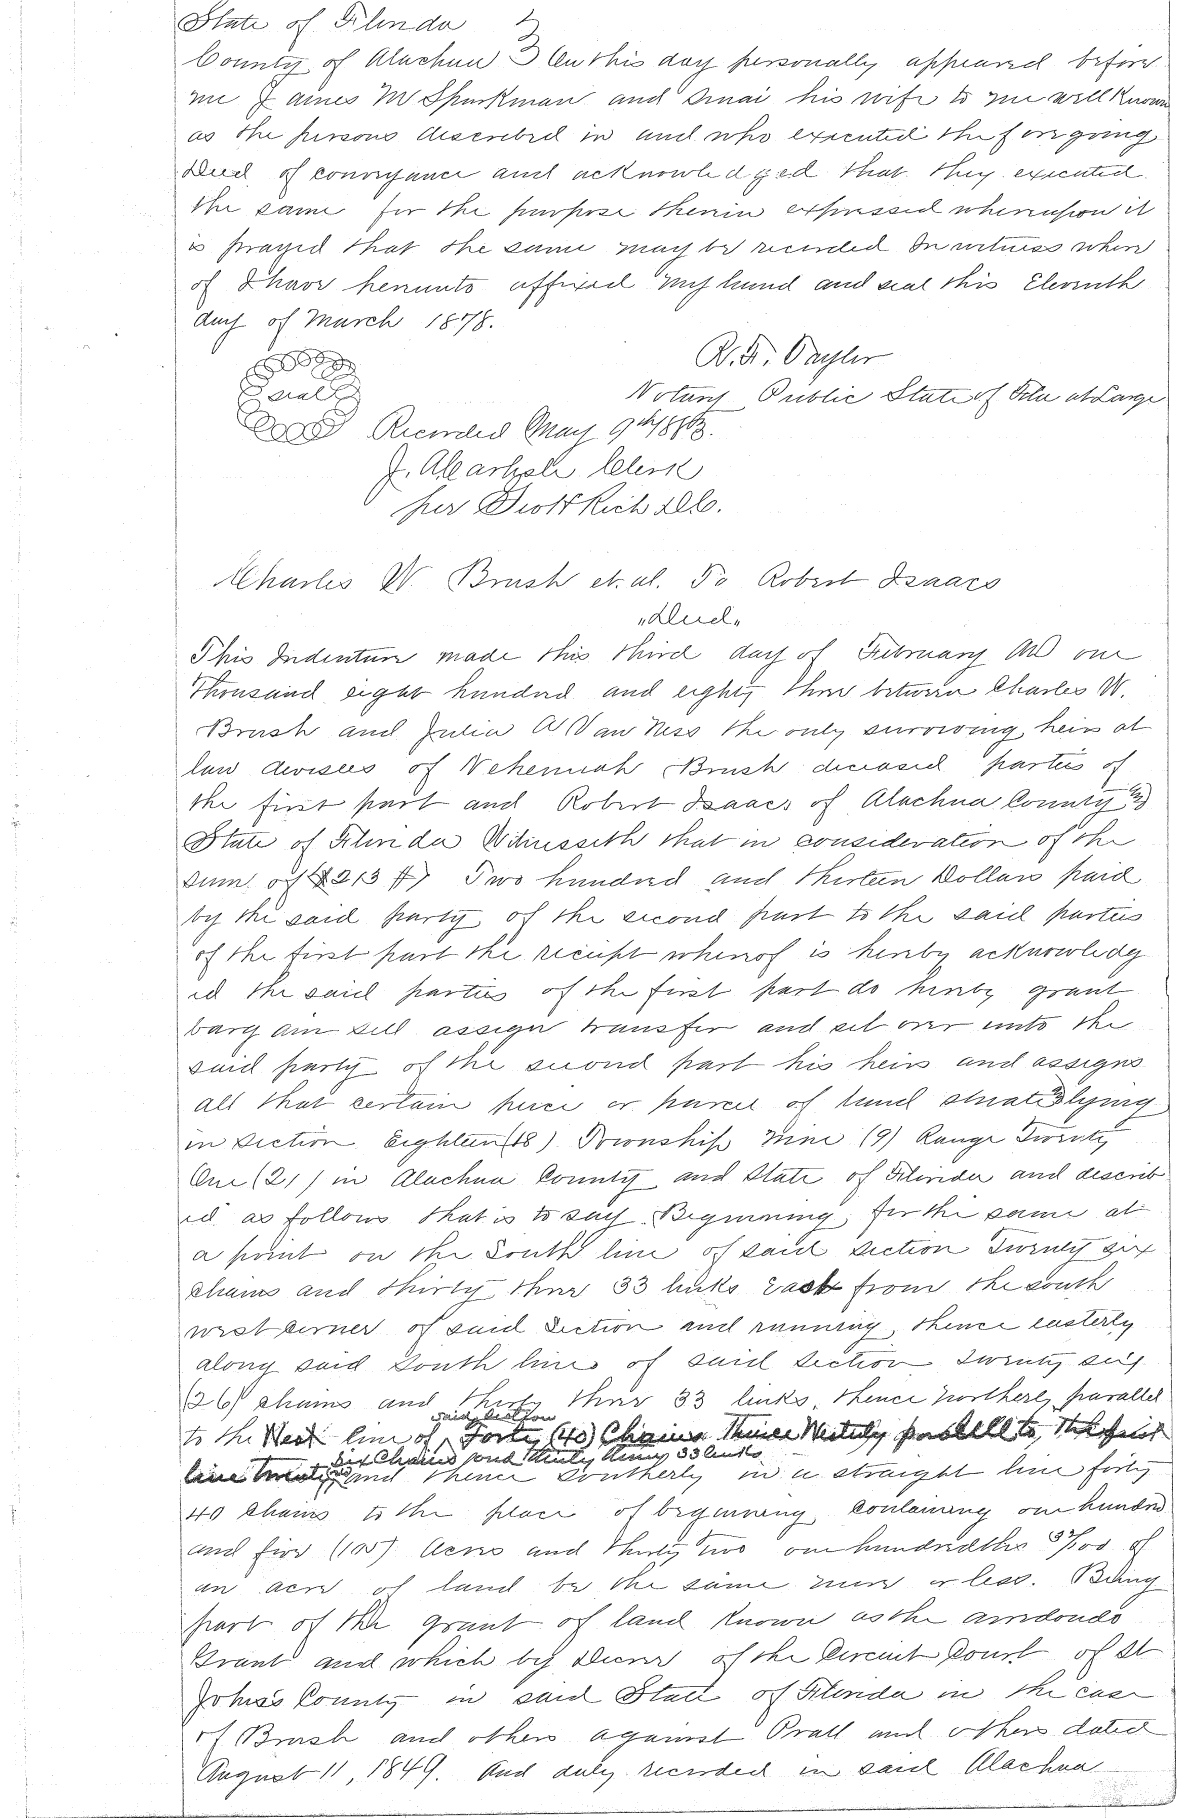 State of Florida
County of Alachua } On this day personally appeared before
me James M Sparkman and Sinai his wife to me well Known
as the persons described in and who executed the foregoing
Deed of conveyance and acknowledged that they executed
the same for the purpose therein expressed whereupon it
is prayed that the same may be recorded In witness where
of I have hereunto affixed my hand and seal this Eleventh
day of March 1878.
R. F. Taylor
Seal
Notary Public State of Fla at Large
Recorded May 9th 1883.
J. A. Carlisle Clerk
per Rich D.C.
Charles W. Brush et. al. To Robert Isaacs
"Deed"
This Indenture made this third day of February AD one
Thousand eight hundred and eighty three between Charles W.
Brush and Julia A Van Ness the only surviving heirs at
law devisees of Nehemiah Brush deceased parties of
the first part and Robert Isaacs of Alachua County and
State of Florida Witnesseth that in consideration of the
sum of ($213 #) Two hundred and thirteen Dollars paid
by the said party of the second part to the said parties
of the first part the receipt whereof is hereby acknowledg
ed the said parties of the first part do hereby grant
bargain sell assign transfer and set over unto the
said party of the second part his heirs and assigns
all that certain piece or parcel of land situate & lying
in Section Eighteen (18) Township Nine (9) Range Twenty
One (21) in Alachua County and State of Florida and describ
ed as follows that is to say Beginning for the same at
a point on the South line of said Section Twenty six
chains and thirty three 33 links East from the south
west corner of said Section and running thence easterly
along said South line of said Section twenty six
(26) chains and thirty three 33 links thence northerly parallel
said Section
to the West line of Forty (40) Chains Thence Westerly parallel to the first
six Chains and thirty three 33 links
line twenty and thence Southerly in a straight line forty
40 chains to the place of beginning containing one hundred
and five (105) Acres and thirty two one hundredths 32/100 of
an acre of land be the same more or less. Being
part of the grant of land known as the arredondo
Grant and which by Decree of the Circuit Court of St
John's County in said State of Florida in the case
of Brush and others against Prall and others dated
August 11, 1849. And duly recorded in said Alachua